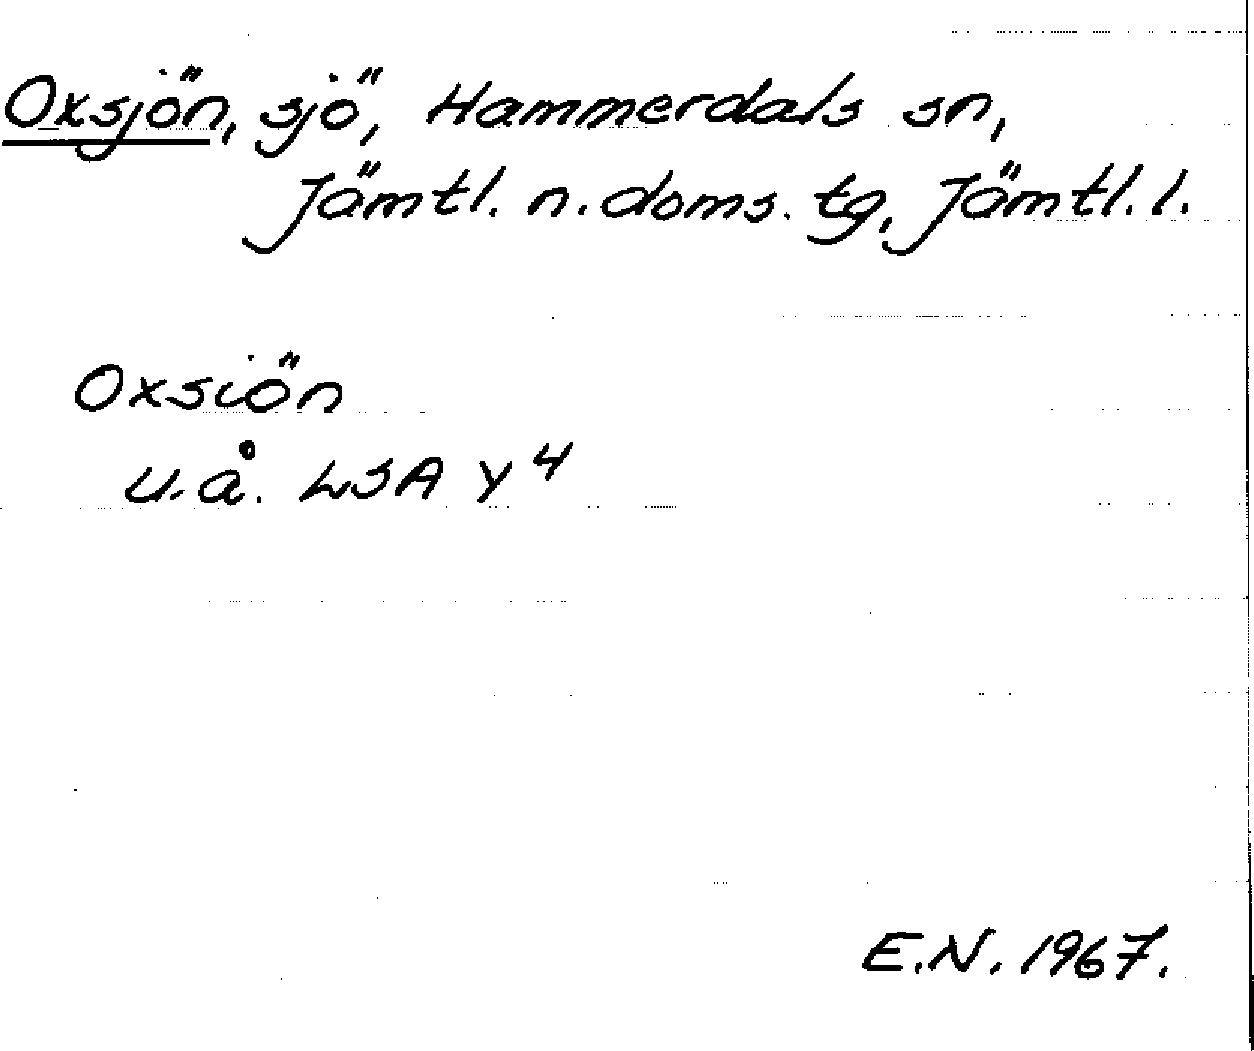 Oxsjön, sjö, Hammerdals sn,
Jämtl. n. doms. tg, Jämtl. l.
Oxsiön
u.å. LSA Y 4
E.N. 1967.